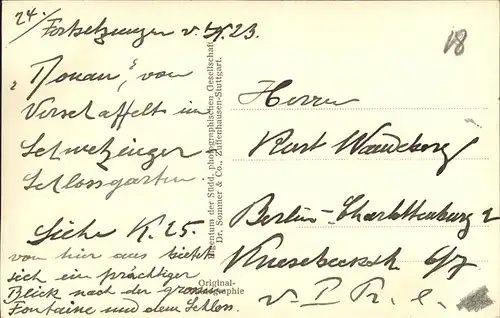 24./ Fortsetzungen v. IX. 23.
"Donau," von
Verschaffelt im
Schwetzinger
Schlossgarten.
Siehe K. 25.
von hier aus bietet
sich ein prächtiger
Blick nach der grossen
Fontaine und dem Schloss.
Eigentum der Südd. photographischen Gesellschaft
Dr. Sommer & Co., Zuffenhausen-Stuttgart.
Original-
Photographie
18
Herrn
Kurt
Berlin-Charlottenburg 2
Knesebeckstr 6/7
v. I Tr. l.